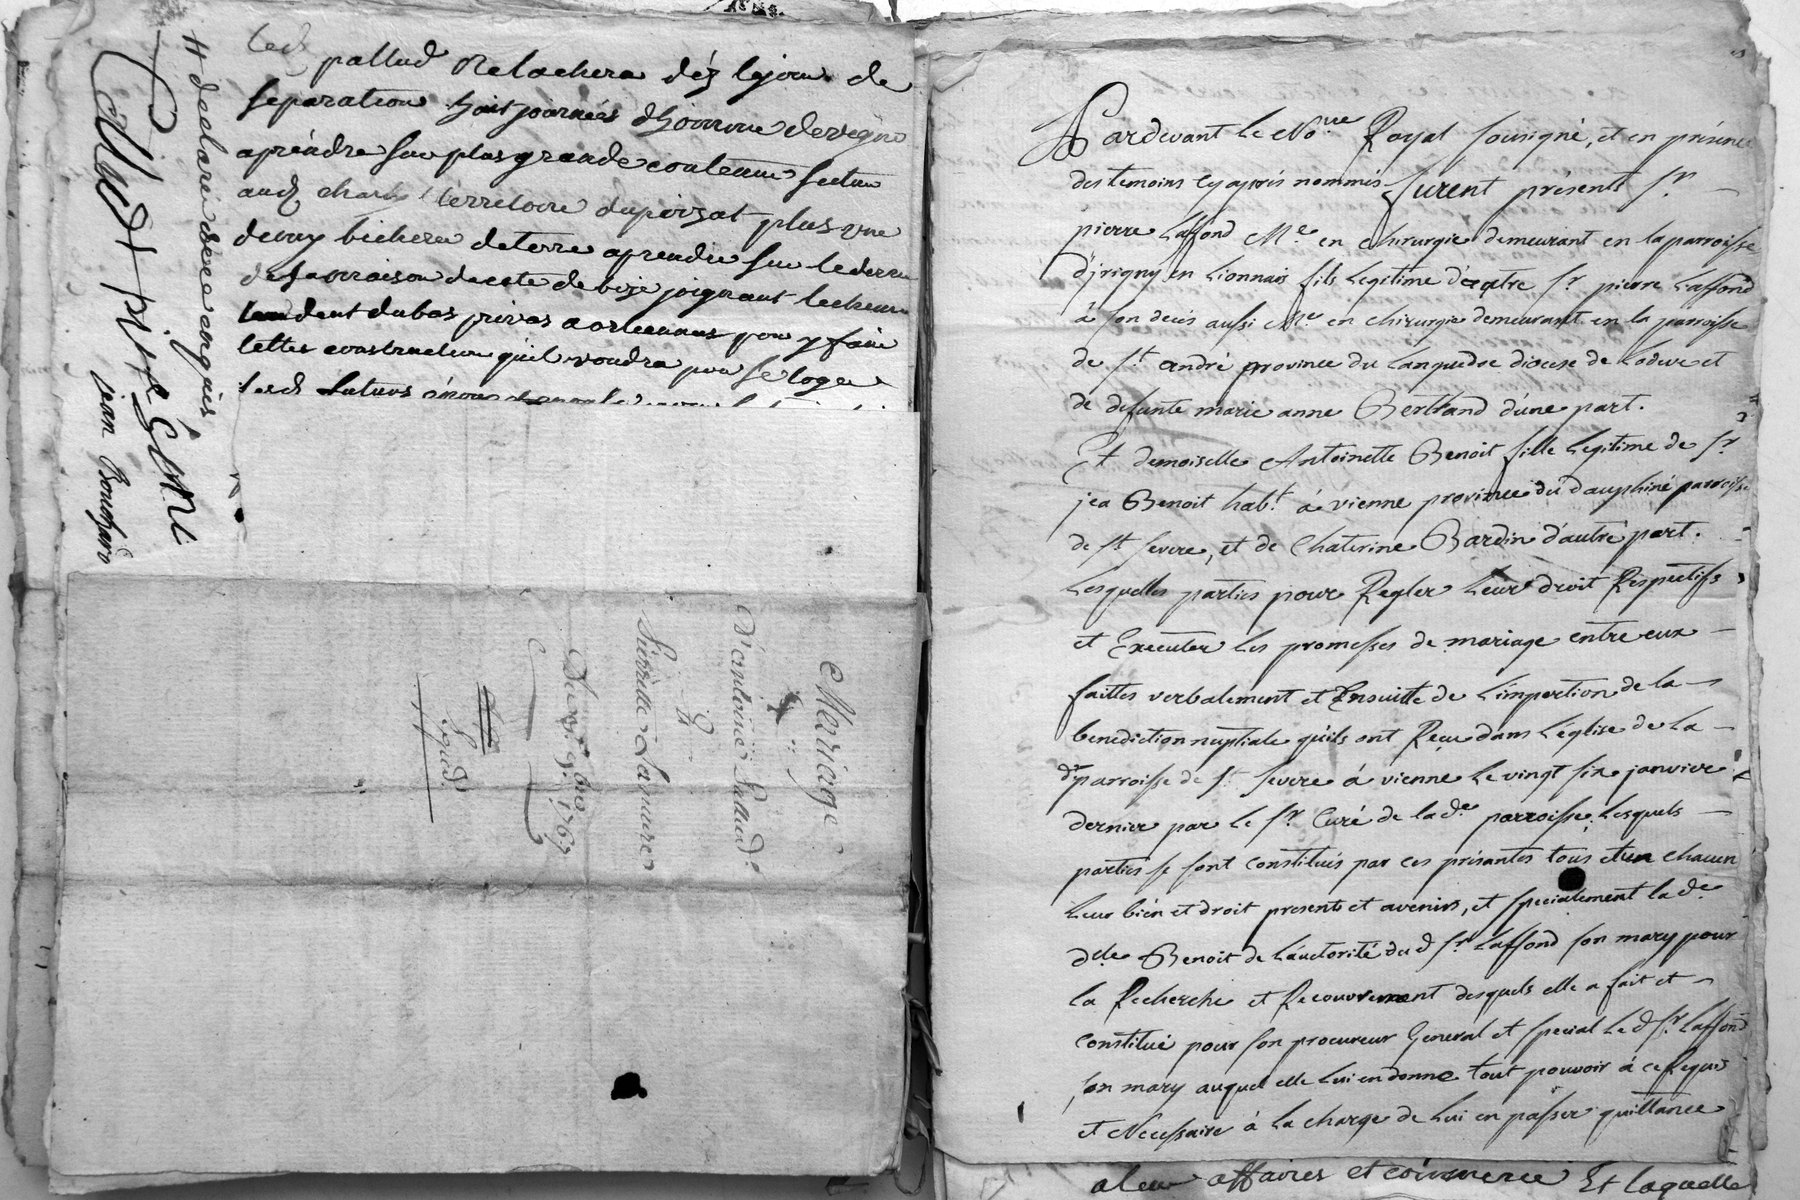 pallud Relachera dés le jour de
separation huit journées d'homme de vigne
a prendre sur plus grande contenue scitue
aud territoire du perzat plus une
demy bichere de terre a prendre sur le
de sa maison de cote de bize joignant le chemin
tendent du bas privas a orlienas pour y faire
telles construction qu'il voudra pour se loger
lesd futurs
# declaré de ce enquis
Collud pitt Géni
jean Bouchard
Mariage
D'antoine Giraud
&
Pierrette Laguaire
Du 9bre 1767
Expéd.
Pardevant le No.re Royal sousigné, et en présence
des temoins cy aprés nommés furent présents Sr
pierre Laffond M.e en chirurgie demeurant en la parroisse
d'jrigny en Lionnais fils Legitime d'autre Sr pierre Laffond
à son decés aussi M.e en chirurgie demeurant en la parroisse
de St andré province du Languedoc diocese de Lodeve et
de defunte marie anne Bertrand d'une part.
Et demoiselle Antoinette Benoit fille Legitime de Sr
jea Benoit hab.t à vienne province du dauphiné parroisse
de St severe, et de Chaterine Bardin d'autre part.
Lesquelles parties pour Regler leur droit Respectifs
et Executer les promesses de mariage entre eux
faittes verbalement et Ensuitte de L'impartion de la
benediction nuptiale qu'ils ont Reçue dans L'église de La
de parroisse de St severe à vienne le vingt six janvier
dernier par le Sr Curé de la de parroisse, Lesquels
parties se sont constitués par ces présantes tous et un chacun
Leur bién et droit presents et avenirs, et specialement la de
dlle Benoit de L'auctorité dud Sr Laffond son mary pour
la Recherche et Recouvrement desquels elle a fait et
constitué pour son procureur General et special Le d Sr Laffond
son mary auquel elle Lui en donne tout pouvoir à ce Requis
et Necessaire à la charge de Lui en passer quittance
a leur affaires et commerce Et laquelle